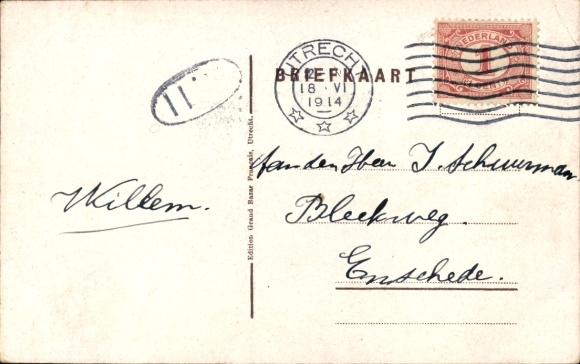 BRIEFKAART
UTRECHT
18 VI
1914
NEDERLAND
1
11
Aan den Heer J. Schuurman
Bleekweg.
Enschede.
Willem.
Edition Grand Bazar Français, Utrecht.